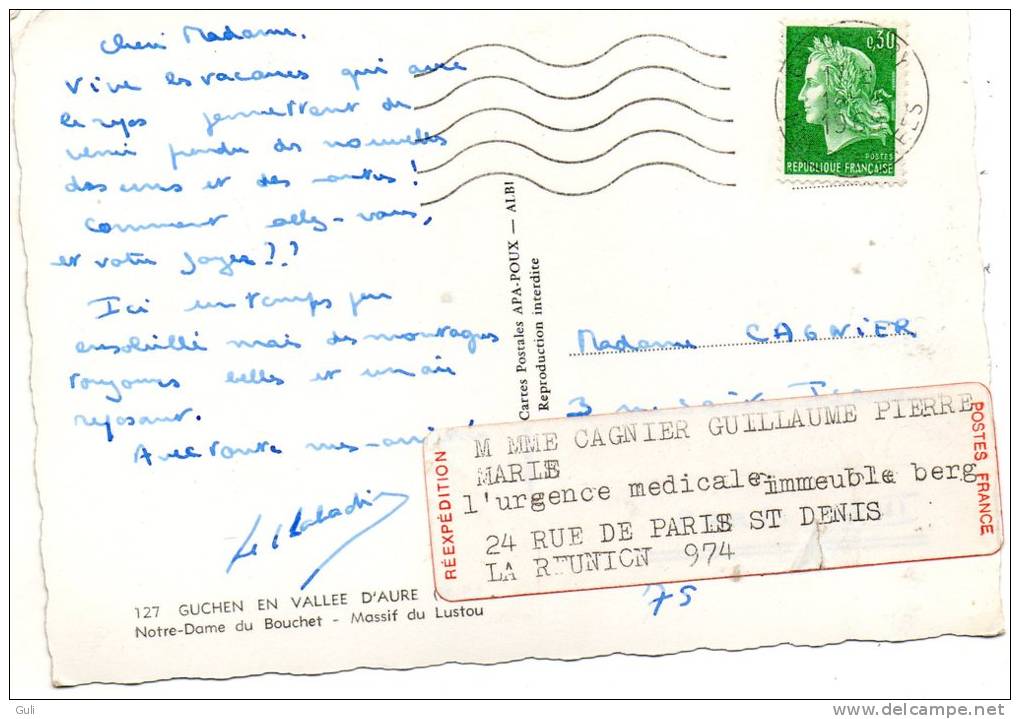 Cheri Madame.
Vive les vacances qui avec
le repos permettent de
venir prendre des nouvelles
des uns et des autres!
Comment allez-vous,
et votre foyer??
Ici un temps peu
ensoleillé mais des montagnes
toujours belles et un air
reposant.
Avec toute mes
127 GUCHEN EN VALLEE D'AURE (
Notre-Dame du Bouchet - Massif du Lustou
Cartes Postales APA-POUX — ALBI
Reproduction interdite
0,30
POSTES
REPUBLIQUE FRANÇAISE
Madame CAGNIER
3
RÉEXPÉDITION
M MME CAGNIER GUILLAUME PIERRE
MARIE
l'urgence medicale immeuble berg
24 RUE DE PARIS ST DENIS
LA REUNION 974
POSTES FRANCE
75
Guli
www.delcampe.net